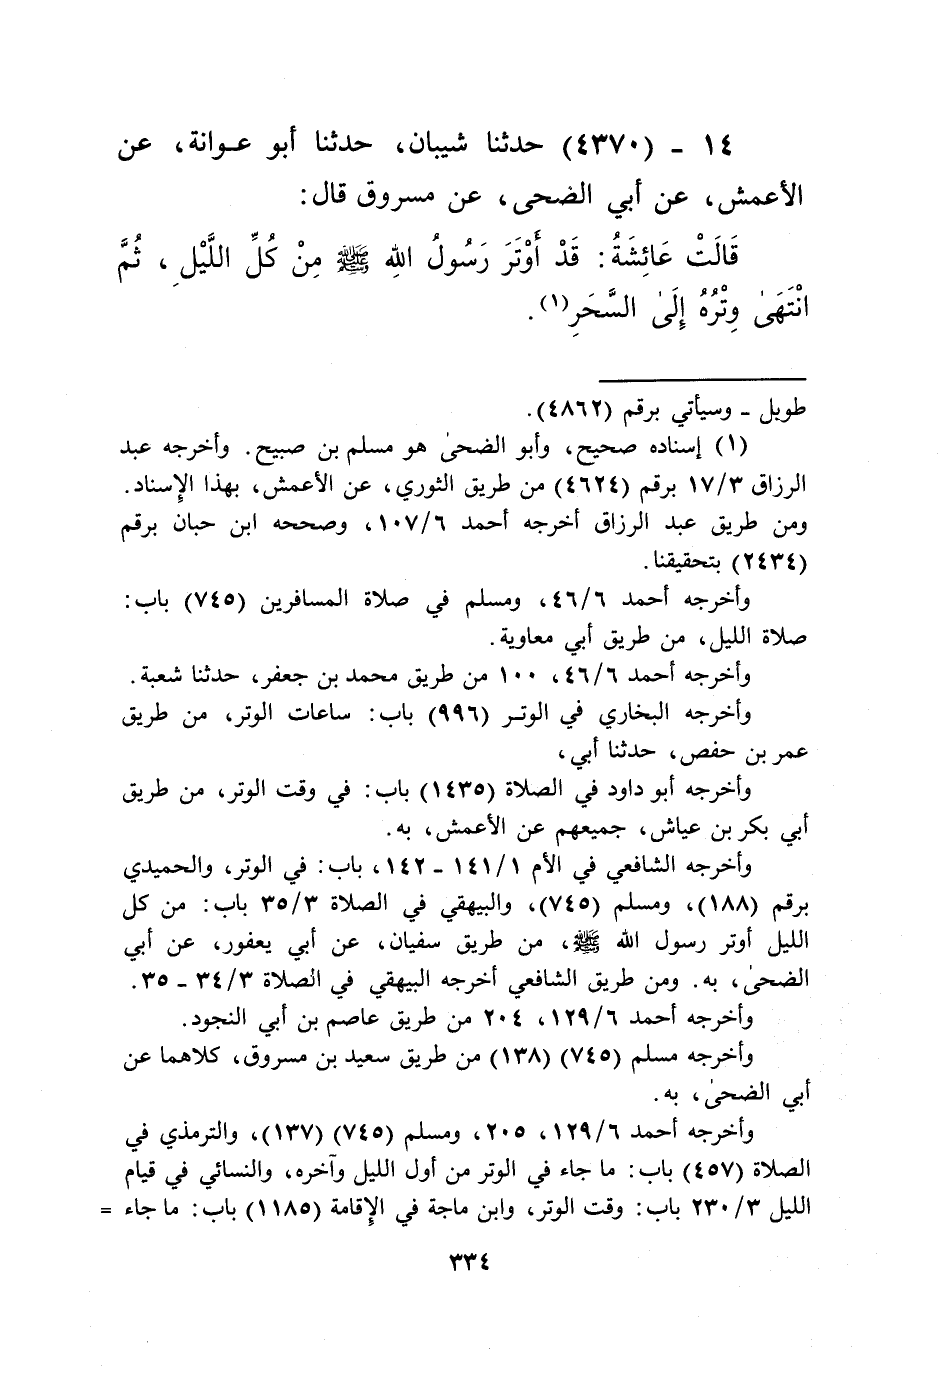 ١٤ - (٤٣٧٠) حدثنا شيبان، حدثنا أبو عـوانة، عن
الأعمش، عن أبي الضحى، عن مسروق قال:
قَالَتْ عَائِشَةُ: قَدْ أَوْتَرَ رَسُولُ اللهِ ﷺ مِنْ كُلِّ اللَّيْلِ، ثُمَّ
انْتَهَىٰ وِتْرُهُ إِلَىٰ السَّحَرِ(١).
طويل - وسيأتي برقم (٤٨٦٢).
(١) إسناده صحيح، وأبو الضحىٰ هو مسلم بن صبيح. وأخرجه عبد
الرزاق ١٧/٣ برقم (٤٦٢٤) من طريق الثوري، عن الأعمش، بهذا الإسناد.
ومن طريق عبد الرزاق أخرجه أحمد ١٠٧/٦، وصححه ابن حبان برقم
(٢٤٣٤) بتحقيقنا.
وأخرجه أحمد ٤٦/٦، ومسلم في صلاة المسافرين (٧٤٥) باب:
صلاة الليل، من طريق أبي معاوية.
وأخرجه أحمد ٤٦/٦، ١٠٠ من طريق محمد بن جعفر، حدثنا شعبة.
وأخرجه البخاري في الوتـر (٩٩٦) باب: ساعات الوتر، من طريق
عمر بن حفص، حدثنا أبي،
وأخرجه أبو داود في الصلاة (١٤٣٥) باب: في وقت الوتر، من طريق
أبي بكر بن عياش، جميعهم عن الأعمش، به.
وأخرجه الشافعي في الأم ١٤١/١ - ١٤٢، باب: في الوتر، والحميدي
برقم (١٨٨)، ومسلم (٧٤٥)، والبيهقي في الصلاة ٣٥/٣ باب: من كل
الليل أوتر رسول الله ﷺ، من طريق سفيان، عن أبي يعفور، عن أبي
الضحىٰ، به. ومن طريق الشافعي أخرجه البيهقي في الصلاة ٣٤/٣ - ٣٥.
وأخرجه أحمد ١٢٩/٦، ٢٠٤ من طريق عاصم بن أبي النجود.
وأخرجه مسلم (٧٤٥) (١٣٨) من طريق سعيد بن مسروق، كلاهما عن
أبي الضحىٰ، به.
وأخرجه أحمد ١٢٩/٦، ٢٠٥، ومسلم (٧٤٥) (١٣٧)، والترمذي في
الصلاة (٤٥٧) باب: ما جاء في الوتر من أول الليل وآخره، والنسائي في قيام
الليل ٢٣٠/٣ باب: وقت الوتر، وابن ماجة في الإقامة (١١٨٥) باب: ما جاء =
٣٣٤